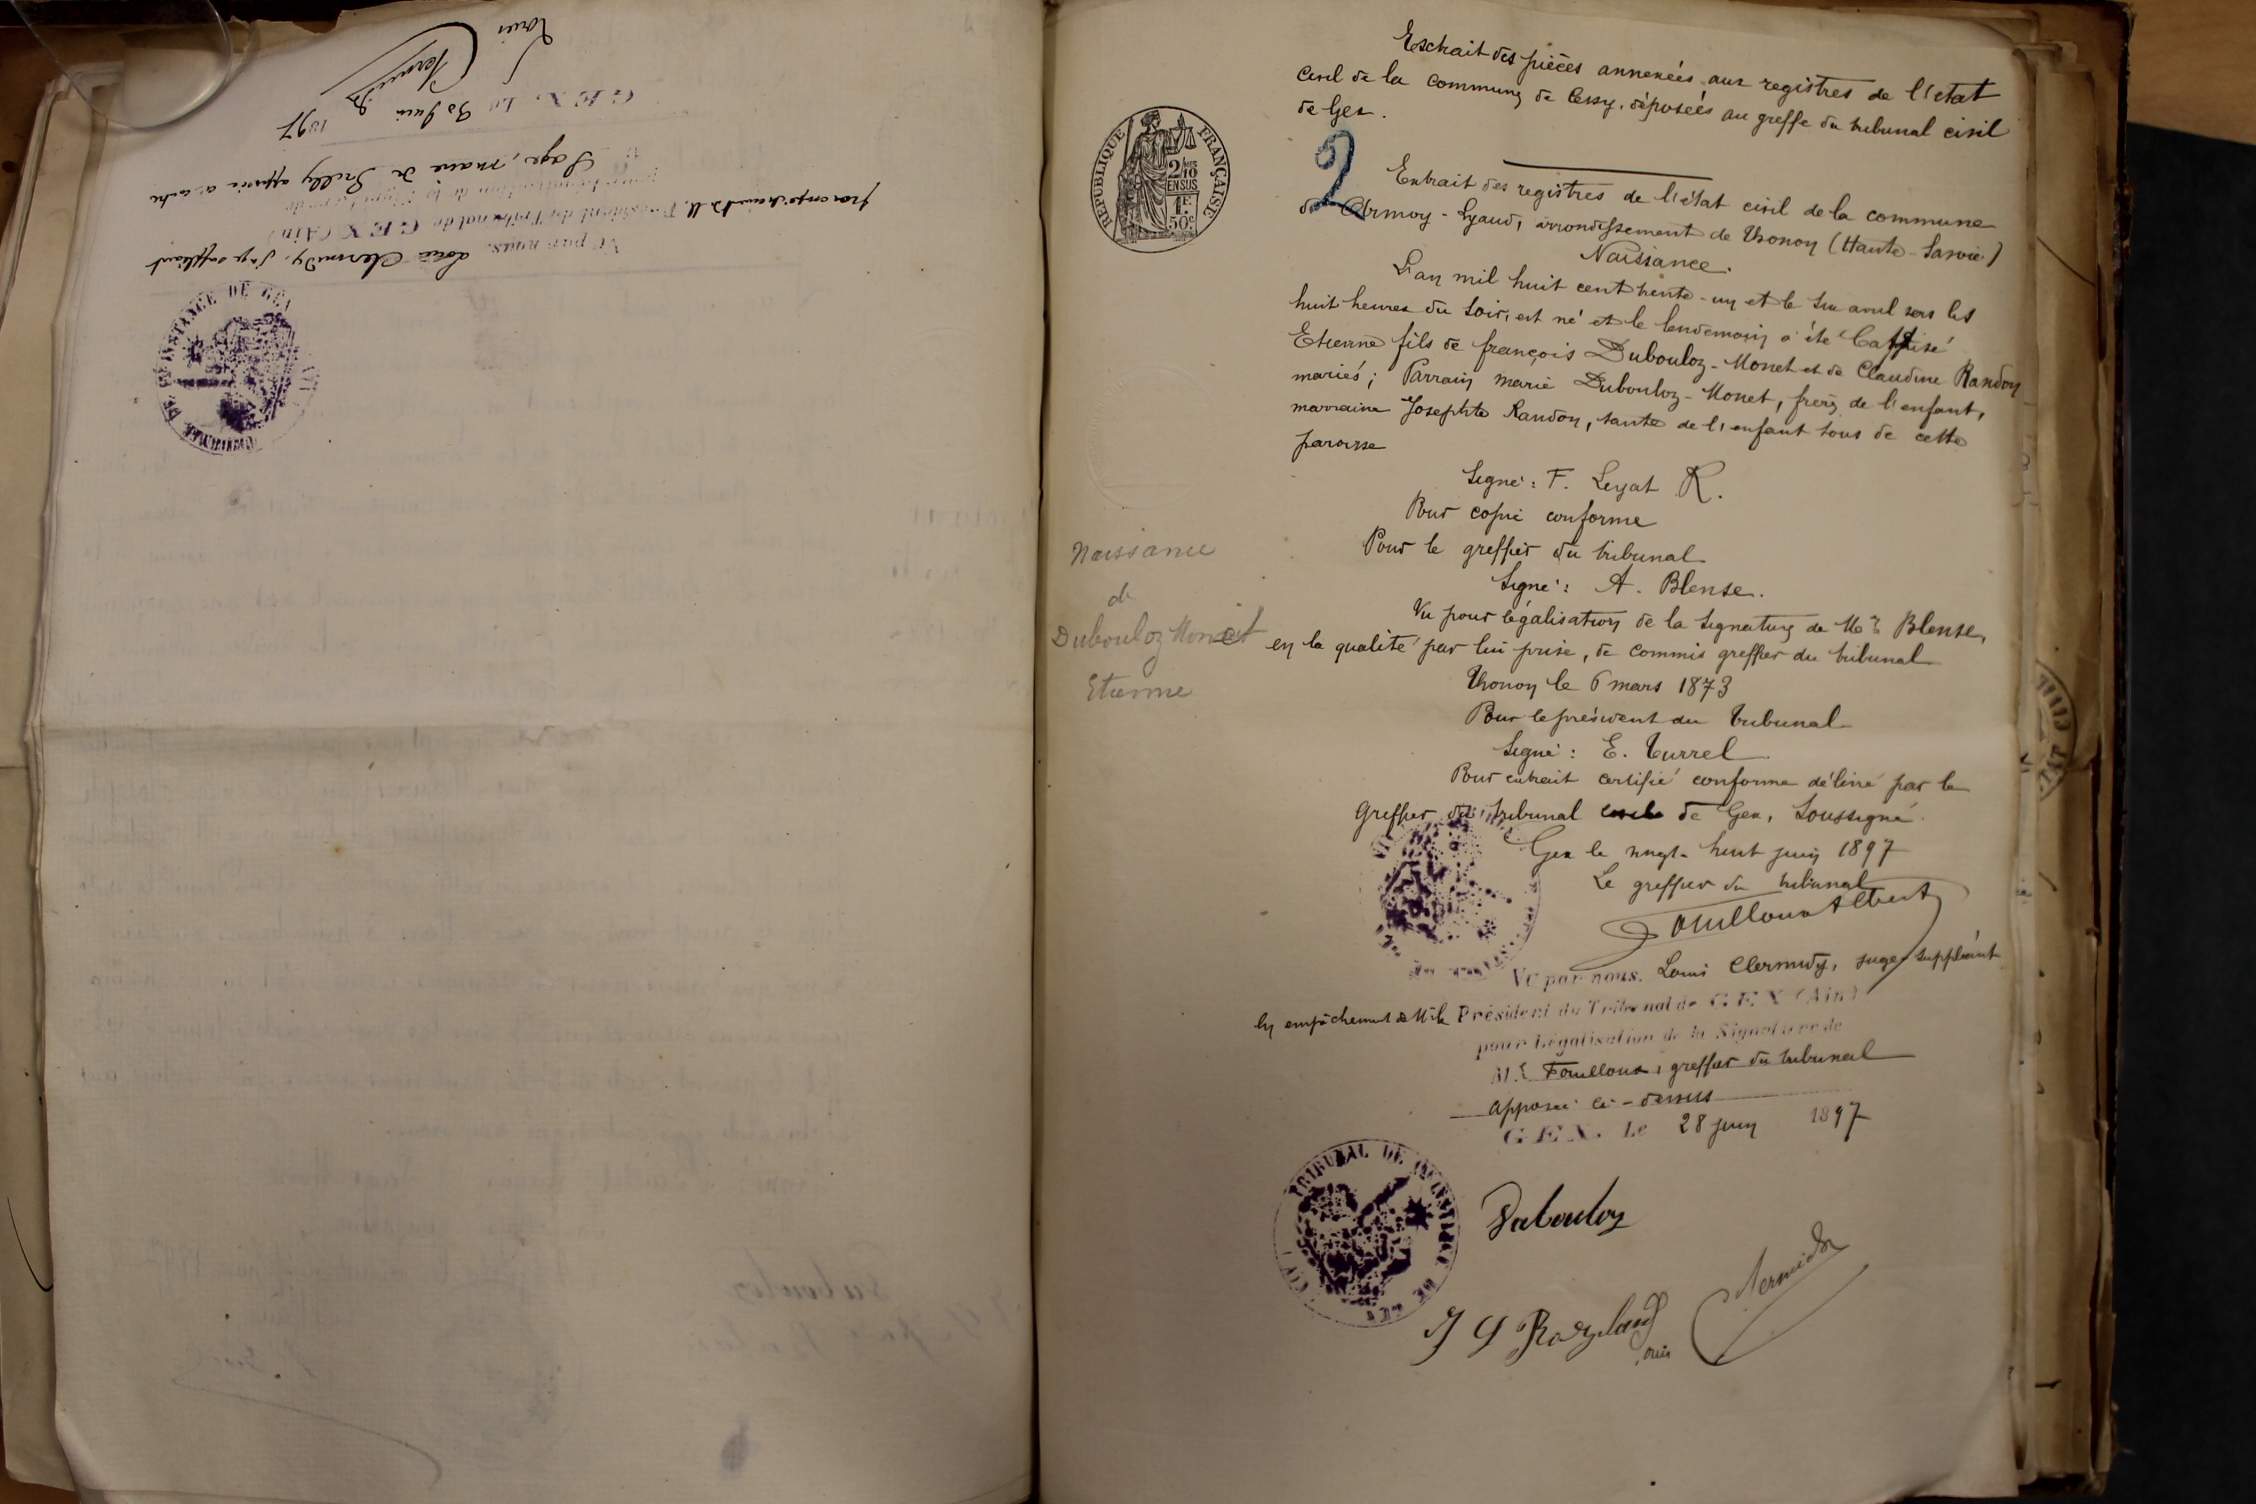 Louis
Clermidy
GEX, Le 30 Juin 1897
Sage, maire de Grilly apposée ci-contre
pour Légalisation de la Signature de
Président du Tribunal de GEX (Ain)
Vu par nous. Louis Clermidy, juge suppléant
Extrait des pièces annexées aux registres de l'état
civil de la commune de Cessy, déposées au greffe du tribunal civil
de Gex.
REPUBLIQUE FRANÇAISE
2/10
EN SUS
1F
50c
2
Extrait des registres de l'état civil de la commune
d'Armoy-Lyaud, arrondissement de Thonon (Haute-Savoie)
Naissance.
L'an mil huit cent trente-un et le six avril vers les
huit heures du soir, est né et le lendemain a été baptisé
Etienne fils de françois Dubouloz-Monet et de Claudine Randon
mariés; Parrain marie Dubouloz-Monet, frère de l'enfant,
marraine Josephte Randon, tante de l'enfant tous de cette
paroisse
Signé: F. Leyat R.
Pour copie conforme
Pour le greffier du tribunal
Signé: A. Blense.
Vu pour légalisation de la signature de Mr Blense,
en la qualité par lui prise, de commis greffier du tribunal
Thonon le 6 mars 1873
Pour le président du Tribunal
Signé: E. Turrel
Pour extrait certifié conforme délivré par le
Greffier du tribunal civil de Gex, soussigné.
Gex le vingt-huit juin 1897
Le greffier du tribunal
Fouilloux Albert
Vu par nous. Louis Clermidy, juge suppléant
en empêchement de Mr le Président du Tribunal de GEX (Ain)
pour Légalisation de la Signature de
M.r Fouilloux, greffier du tribunal
apposée ci-dessus
GEX. Le 28 juin 1897
TRIBUNAL DE 1ERE INSTANCE DE GEX (AIN)
Dubouloz
Clermidy
Louis
Naissance
de
Dubouloz Monet
Etienne